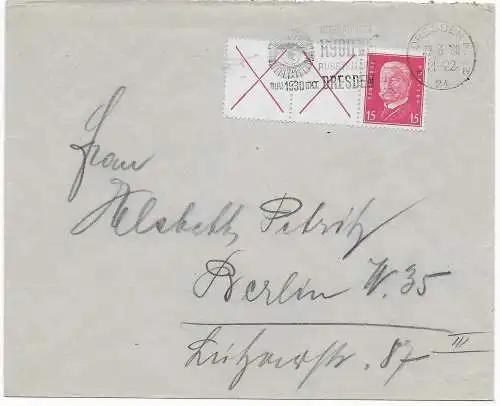 HYGIENE
DRESDEN
MAI 1930 OKT.
DRESDEN
24
15 15
Frau
Elsbeth Petritz
Berlin W. 35
Lützowstr. 87 III